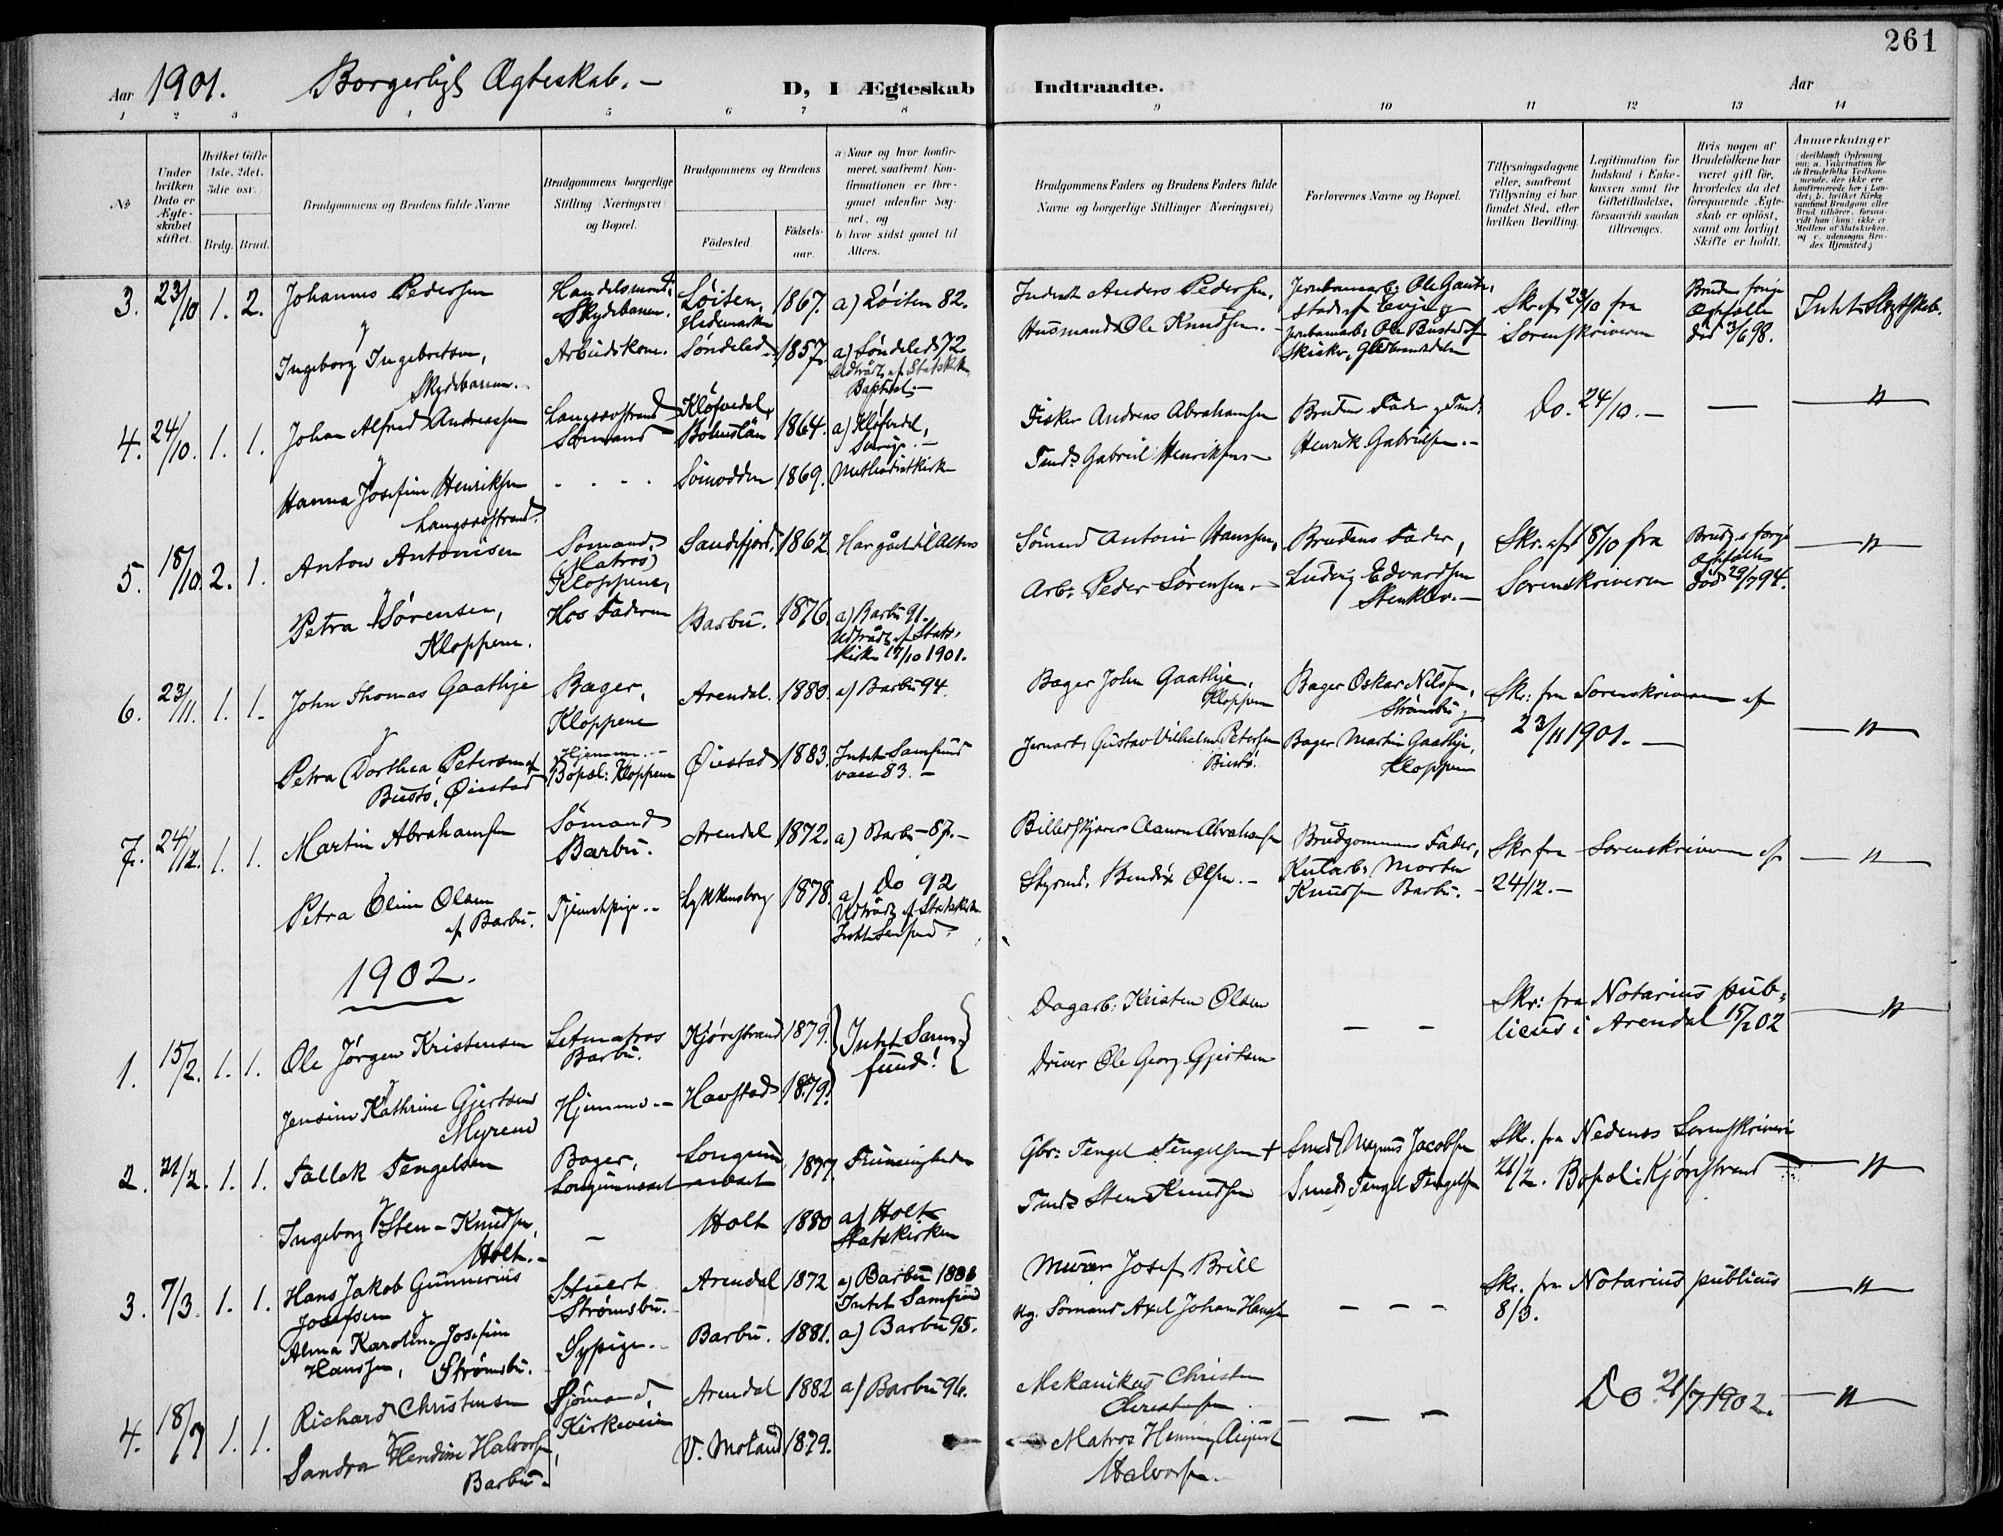 261
Aar 1901. Borgerligt Ægteskab. —
D, I Ægteskab Indtraadte.
Aar
1 2 3 4 5 6 7 8 9 10 11 12 13 14
№
Under hvilken Dato er Ægteskabet stiftet.
Hvilket Gifte 1ste, 2det, 3die osv.
Brdg. Brud.
Brudgommens og Brudens fulde Navne
Brudgommens borgerlige Stilling (Næringsvei) og Bopæl.
Brudgommens og Brudens
Fødested.
Fødsels-aar.
a) Naar og hvor konfirmeret, saafremt Konfirmationen er foregaaet udenfor Sognet, og
b) hvor sidst gaaet til Alters.
Brudgommens Faders og Brudens Faders fulde Navne og borgerlige Stillinger (Næringsvei)
Forlovernes Navne og Bopæl.
Tillysningsdagene eller, saafremt Tillysning ei har fundet Sted, efter hvilken Bevilling.
Legitimation for Indskud i Enkekassen samt for Giftetilladelse, forsaavidt saadan tiltrænges.
Hvis nogen af Brudefolkene har været gift før, hvorledes da det foregaaende Ægteskab er opløst, samt om lovligt Skifte er holdt.
Anmerkninger
3. 23/10 1. 2. Johannes Pedersen
Handelsmand, Skydebanen. Løiten, Hedemarken 1867. a) Løiten 82.
Anders Pedersen.
Skr. af 23/10 fra Sorenskriveren
død 3/6 98.
Intet Slægtskab.
Ingeborg Ingebretsen, Skydebanen.
Arbeidskone. Søndeled 1857. a) Søndeled 72
Udtrådt af Statskirken Baptist. —
Husmand Ole Knudsen. —
4. 24/10. 1. 1. Johan Alfred Andreassen
Langsostrand Sømand Kløfvedal, Bohuslän 1864. a) Kløfvedal, Sverige. —
Fisker Andreas Abrahamsen
Brudens Fader
Henrik Gabrielsen. —
Do. 24/10. — — — " —
Hanna Josefine Henriksen Langsostrand.
- - - - Sømodden 1869. Methodistkirken
Gabriel Henriksen —
5. 18/10. 2. 1. Anton Antonisen
Sømand. (Matros) Kloppene, Sandefjord. 1862 Har gået til Alters
Sømand Antoni Hanssen,
Brudens Fader,
Ludvig Edvardsen
Skr. af 18/10 fra Sorenskriveren
død 29/7 94.
— " —
Petra Sørensen, Kloppene.
Hos Faderen Barbu. 1876. a) Barbu 91.
Udtrådt af Statskirken 17/10 1901.
Arb: Peder Sørensen. —
6. 23/11. 1. 1. John Thomas Gaathje
Bager, Kloppene Arendal. 1880. a) Barbu 94.
Bager John Gaathje, Kloppen
Bager Oskar Nilsen, Strømsbu
Skr: fra Sorenskriveren af 23/11 1901. —
— " —
Petra Dorthea Petersen af Busø, Øiestad
Hjemme. — Bopæl: Kloppene Øiestad 1883. Intet Samfund
Gustav Vilhelm Petersen
Bager Martin Gaathje, Kloppen
7. 24/12. 1. 1. Martin Abrahamsen
Sømand Barbu. Arendal 1872. a) Barbu 87. —
Aanon Abrahamsen
Brudgommens Fader,
Morten Knudsen Barbu. —
Skr fra Sorenskriveren af 24/12. —
— " —
Petra Oline Olsen af Barbu.
Tjenestepige. — Lykkensborg 1878. a) Do 92
Udtrådt af Statskirken Intet Samfund.
Bendix Olsen. —
1902.
1. 15/2. 1. 1. Ole Jørgen Kristensen
Letmatros Barbu. Kjørestrand 1879. Intet Samfund!
Dagarb: Kristen Olsen
— —
Skr: fra Notarius publicus i Arendal 15/2 02
— " —
Jensine Kathrine Gjertsen Myrene
Hjemme. — Havstad 1879.
Driver Ole Georg Gjertsen
2. 21/2. 1. 1. Tallek Tengelsen
Bager, 1877. Frimenigheden
Gbr: Tengel Tengelsen +
Smed Magnus Jacobsen
Smed Tengel Tengelsen
Skr. fra Nedenes Sorenskriveri 21/2. Bopæl: Kjørestrand
— " —
Ingeborg Sten-Knudsen, Holt. —
— Holt 1880 a) Holt Statskirken
Sten Knudsen
3. 7/3. 1. 1. Hans Jakob Gunnerius Josefsen
Stuert Strømsbu. — Arendal 1872 a) Barbu 1886 Intet Samfund
Murer Josef Brill
— — —
Skr. fra Notarius publicus 8/3.
— " —
Alma Karoline Josefine Hanssen, Strømsbu.
Sypige. — Barbu. 1881. a) Barbu 95.
Sømand Axel Johan Hanssen
4. 18/7 1. 1. Richard Christensen
Sjømand, Kirkeveien Arendal 1882 a) Barbu 96.
Mekanikus Christen Christensen.
— — —
Do 21/7 1902. — " —
Sandra Hendine Halvorsen, Barbu. —
V. Moland 1879.
— Matros Henning August Halvorsen.